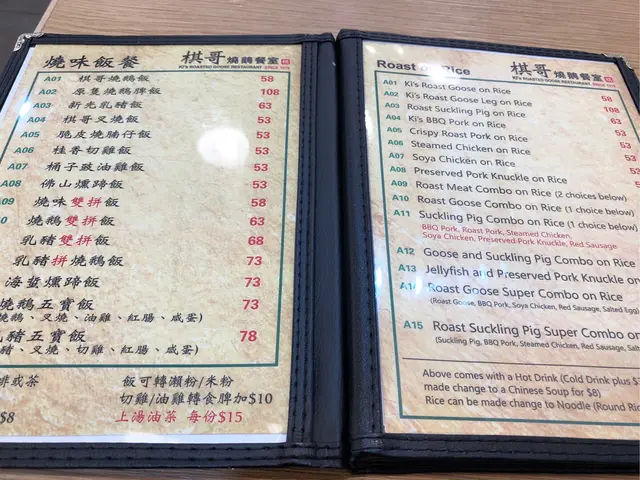 燒味飯餐
棋哥燒鵝餐室
KI'S ROASTED GOOSE RESTAURANT SINCE 1978
A01 棋哥燒鵝飯 58
A02 原隻燒鵝髀飯 108
A03 新光乳豬飯 63
A04 棋哥叉燒飯 53
A05 脆皮燒腩仔飯 53
A06 桂香切雞飯 53
A07 桶子豉油雞飯 53
A08 佛山燻蹄飯 53
A09 燒味雙拼飯 58
0 燒鵝雙拼飯 63
乳豬雙拼飯 68
乳豬拼燒鵝飯 73
海蜇燻蹄飯 73
燒鵝五寶飯 73
燒鵝、叉燒、油雞、紅腸、咸蛋)
乳豬五寶飯 78
豬、叉燒、切雞、紅腸、咸蛋)
啡或茶
飯可轉瀨粉/米粉
切雞/油雞轉食脾加$10
$8
上湯油菜 每份$15
Roast on Rice
棋哥燒鵝餐室
KI'S ROASTED GOOSE RESTAURANT SINCE 1978
A01 Ki's Roast Goose on Rice 58
A02 Ki's Roast Goose Leg on Rice 108
A03 Roast Suckling Pig on Rice 63
A04 Ki's BBQ Pork on Rice 53
A05 Crispy Roast Pork on Rice 53
A06 Steamed Chicken on Rice 53
A07 Soya Chicken on Rice
A08 Preserved Pork Knuckle on Rice
A09 Roast Meat Combo on Rice (2 choices below)
A10 Roast Goose Combo on Rice (1 choice below)
A11 Suckling Pig Combo on Rice (1 choice below)
BBQ Pork, Roast Pork, Steamed Chicken,
Soya Chicken, Preserved Pork Knuckle, Red Sausage
A12 Goose and Suckling Pig Combo on Rice
A13 Jellyfish and Preserved Pork Knuckle on
A14 Roast Goose Super Combo on Rice
(Roast Goose, BBQ Pork, Soya Chicken, Red Sausage, Salted Egg)
A15 Roast Suckling Pig Super Combo on
(Suckling Pig, BBQ Pork, Steamed Chicken, Red Sausage, Salt
Above comes with a Hot Drink (Cold Drink plus
made change to a Chinese Soup for $8)
Rice can be made change to Noodle (Round Ri